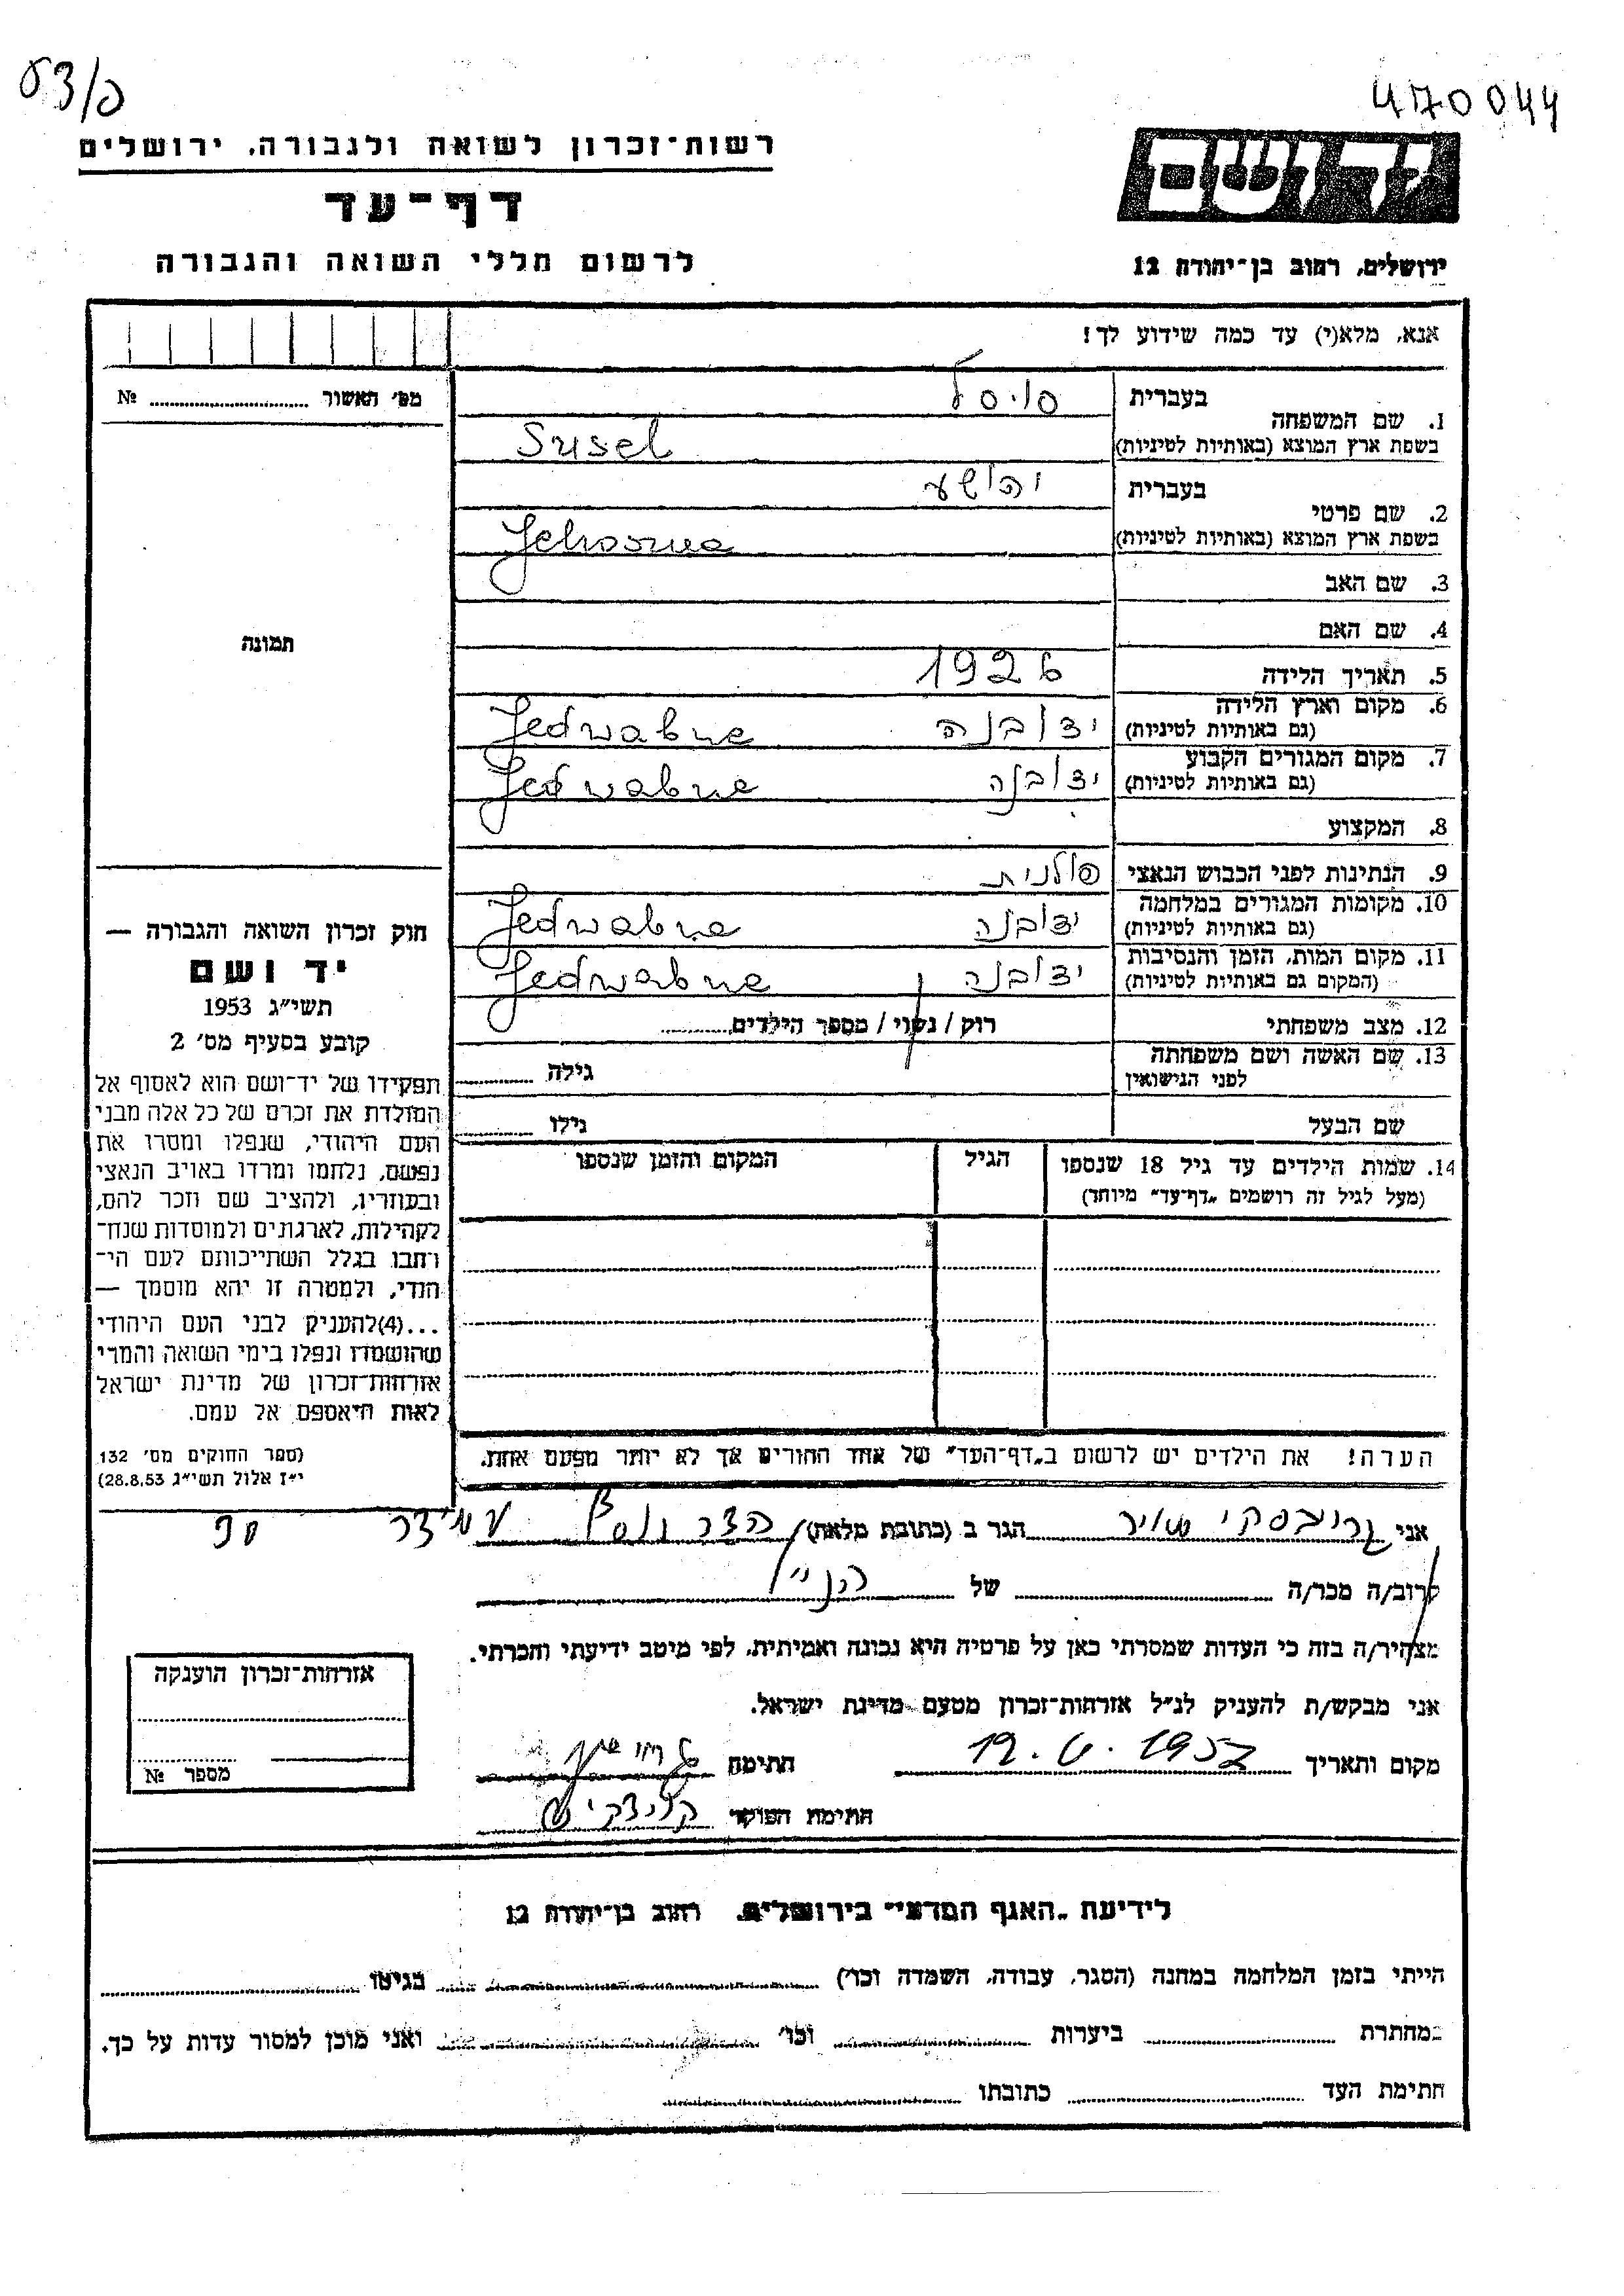 53/פ
470044
רשות־זכרון לשואה ולגבורה, ירושלים
דף־עד
לרשום חללי השואה והגבורה
יד ושם
ירושלים, רחוב בן־יהודה 12
אנא, מלא(י) עד כמה שידוע לך!
מס׳ האשור № ........
1. שם המשפחה
בעברית סוסל
בשפת ארץ המוצא (באותיות לטיניות) Susel
2. שם פרטי
בעברית יהושע
בשפת ארץ המוצא (באותיות לטיניות) Jehoszua
3. שם האב
4. שם האם
5. תאריך הלידה 1926
6. מקום וארץ הלידה
(גם באותיות לטיניות) ידובנה Jedwabne
7. מקום המגורים הקבוע
(גם באותיות לטיניות) ידובנה Jedwabne
8. המקצוע
9. הנתינות לפני הכבוש הנאצי פולנית
10. מקומות המגורים במלחמה
(גם באותיות לטיניות) ידובנה Jedwabne
11. מקום המות, הזמן והנסיבות
(המקום גם באותיות לטיניות) ידובנה Jedwabne
12. מצב משפחתי רוק / נשוי / מספר הילדים........
13. שם האשה ושם משפחתה
לפני הנישואין גילה ........
שם הבעל גילו ........
14. שמות הילדים עד גיל 18 שנספו
(מעל לגיל זה רושמים „דף־עד״ מיוחד)
הגיל
המקום והזמן שנספו
הערה! את הילדים יש לרשום ב„דף־העד״ של אחד ההורים אך לא יותר מפעם אחת.
תמונה
חוק זכרון השואה והגבורה —
יד ושם
תשי״ג 1953
קובע בסעיף מס׳ 2
תפקידו של יד־ושם הוא לאסוף אל
המולדת את זכרם של כל אלה מבני
העם היהודי, שנפלו ומסרו את
נפשם, נלחמו ומרדו באויב הנאצי
ובעוזריו, ולהציב שם וזכר להם,
לקהילות, לארגונים ולמוסדות שנח־
רבו בגלל השתייכותם לעם הי־
הודי, ולמטרה זו יהא מוסמך —
...(4)להעניק לבני העם היהודי
שהושמדו ונפלו בימי השואה והמרי
אזרחות־זכרון של מדינת ישראל
לאות היאספם אל עמם.
(ספר החוקים מס׳ 132
י״ז אלול תשי״ג 28.8.53)
אני מאיר הגר ב (כתובת מלאה) עמידר
קרוב/ה מכר/ה ........ של הנ״ל
מצהיר/ה בזה כי העדות שמסרתי כאן על פרטיה היא נכונה ואמיתית, לפי מיטב ידיעתי והכרתי.
אני מבקש/ת להעניק לנ״ל אזרחות־זכרון מטעם מדינת ישראל.
מקום ותאריך 19.6.1957 חתימה
חתימת הפוקד
אזרחות־זכרון הוענקה
מספר №
לידיעת „האגף המדעי״ בירושלים, רחוב בן־יהודה 12
הייתי בזמן המלחמה במחנה (הסגר, עבודה, השמדה וכו׳) ........ בגיטו ........
במחתרת ........ ביערות ........ וכו׳ ........ ואני מוכן למסור עדות על כך.
חתימת העד ........ כתובתו ........